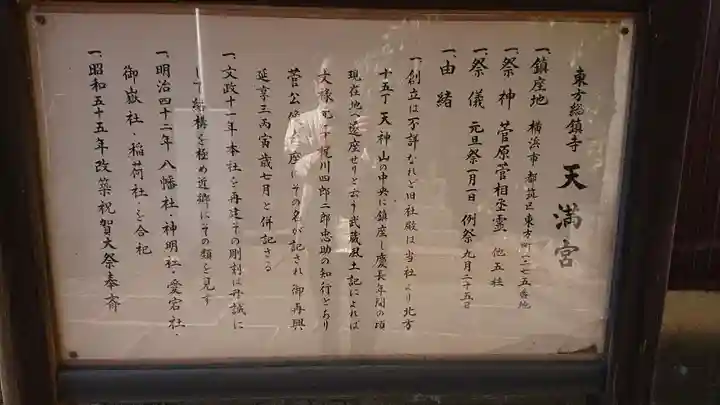 東方総鎮守 天満宮
一、鎮座地 横浜市都筑区東方町一三七五番地
一、祭神 菅原菅相丞霊、他五柱
一、祭儀 元旦祭一月一日 例祭九月二十五日
一、由緒
一、創立は不詳なれど旧社殿は当社より北方
十五丁天神山の中央に鎮座し慶長年間の頃
現在地へ遷座せりと云う武蔵風土記によれば
文禄元年梶川四郎二郎忠助の知行とあり
菅公 座にその名が記され御再興
延享三丙寅歳七月と併記さる
一、文政十一年本社を再建その彫刻は丹誠に
して結構を極め近郷にその類を見ず
一、明治四十二年八幡社・神明社・愛宕社・
御嶽社・稲荷社・を合祀
一、昭和五十五年改築祝賀大祭奉斉